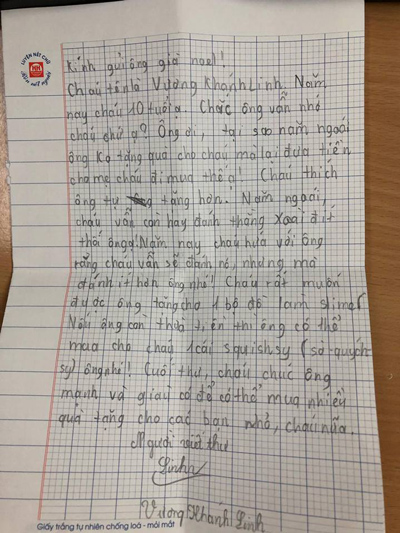 LUYỆN NÉT CHỮ
RÈN NẾT NGƯỜI
Kính gửi ông già noel!
Cháu tên là Vương Khánh Linh. Năm
nay cháu 10 tuổi ạ. Chắc ông vẫn nhớ
cháu chứ ạ? Ông ơi, tại sao năm ngoái
ông ko tặng quà cho cháu mà lại đưa tiền
cho mẹ cháu đi mua thế ạ! Cháu thích
ông tự tặng hơn. Năm ngoái
cháu vẫn còn hay đánh thằng Xoài đít
thối ông ạ. Năm nay cháu hứa với ông
rằng cháu vẫn sẽ đánh nó, nhưng mà
đánh ít hơn ông nhé! Cháu rất muốn
được ông tặng cho 1 bộ đồ làm slime!
Nếu ông còn thừa tiền thì ông có thể
mua cho cháu 1 cái squishsy (sờ-quýsh
sy) ông nhé! Cuối thư, cháu chúc ông
mạnh và giàu có để có thể mua nhiều
quà tặng cho các bạn nhỏ, cháu nữa.
Người viết thư
Linhh
Vương Khánh Linh
Giấy trắng tự nhiên chống loá - mỏi mắt